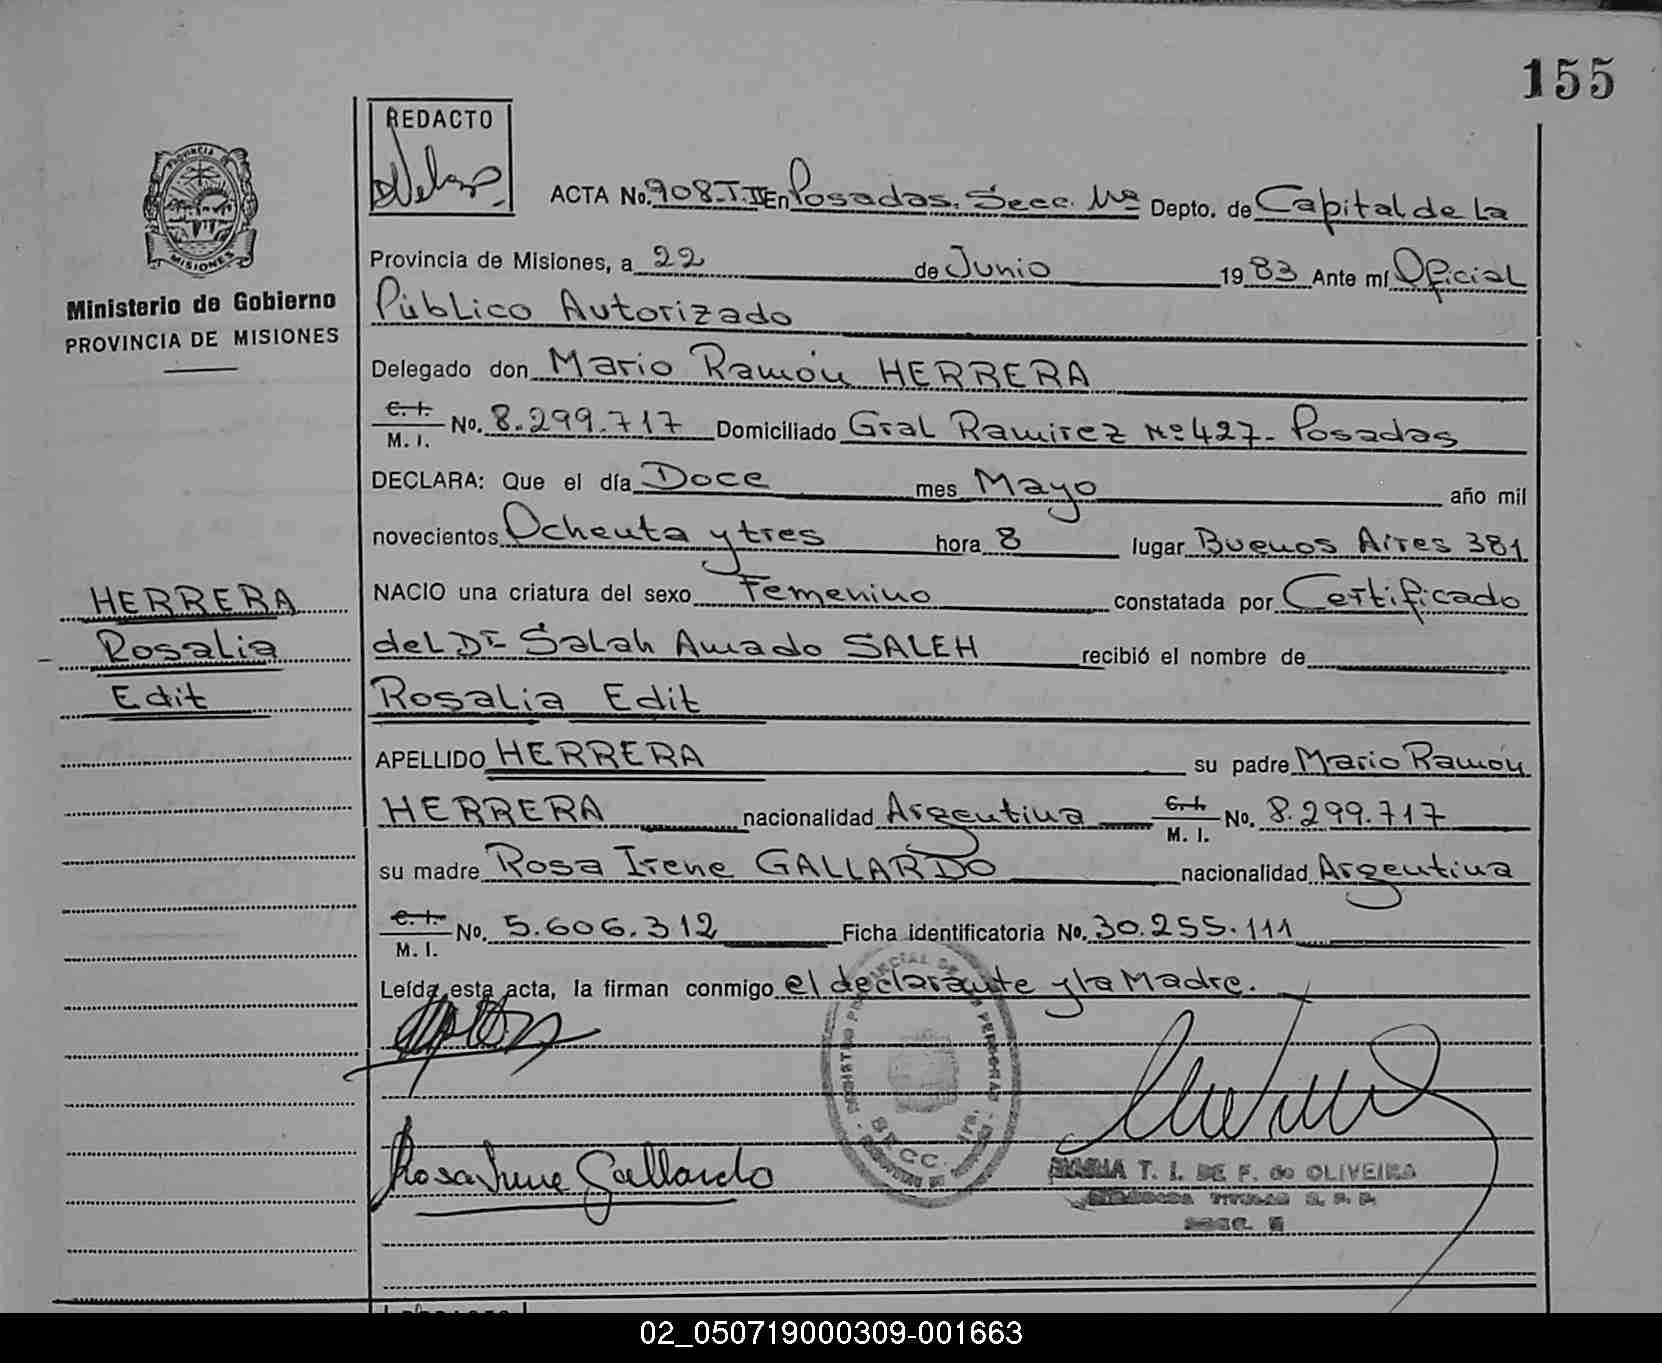 155
REDACTO
PROVINCIA
MISIONES
Ministerio de Gobierno
PROVINCIA DE MISIONES
ACTA No. 908-T.II En Posadas. Secc. Depto. de Capital de la
Provincia de Misiones, a 22 de Junio 1983 Ante mí Oficial
Público Autorizado
Delegado don Mario Ramón HERRERA
C. I.
M. I. No. 8.299.717 Domiciliado Gral Ramirez Nº 427- Posadas
DECLARA: Que el día Doce mes Mayo año mil
novecientos Ochenta y tres hora 8 lugar Buenos Aires 381
NACIO una criatura del sexo Femenino constatada por Certificado
del Dr Salah Amado SALEH recibió el nombre de
Rosalia Edit
APELLIDO HERRERA su padre Mario Ramón
HERRERA nacionalidad Argentina C. I. M. I. No. 8.299.717
su madre Rosa Irene GALLARDO nacionalidad Argentina
C. I.
M. I. No. 5.606.312 Ficha identificatoria No. 30.255.111
Leída esta acta, la firman conmigo el declarante y la Madre.
HERRERA
Rosalia
Edit
Rosa Irene Gallardo
SECC. 1ra.
T. I. DE F. de OLIVEIRA
02_050719000309-001663